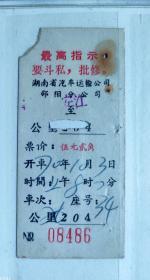 最高指示
要斗私，批修。
湖南省汽车运输公司
邵阳分公司
至
公里
票价：伍元贰角
开车70年10月3日
时間：8时分
车次：座号：34
公里204
NR 08486